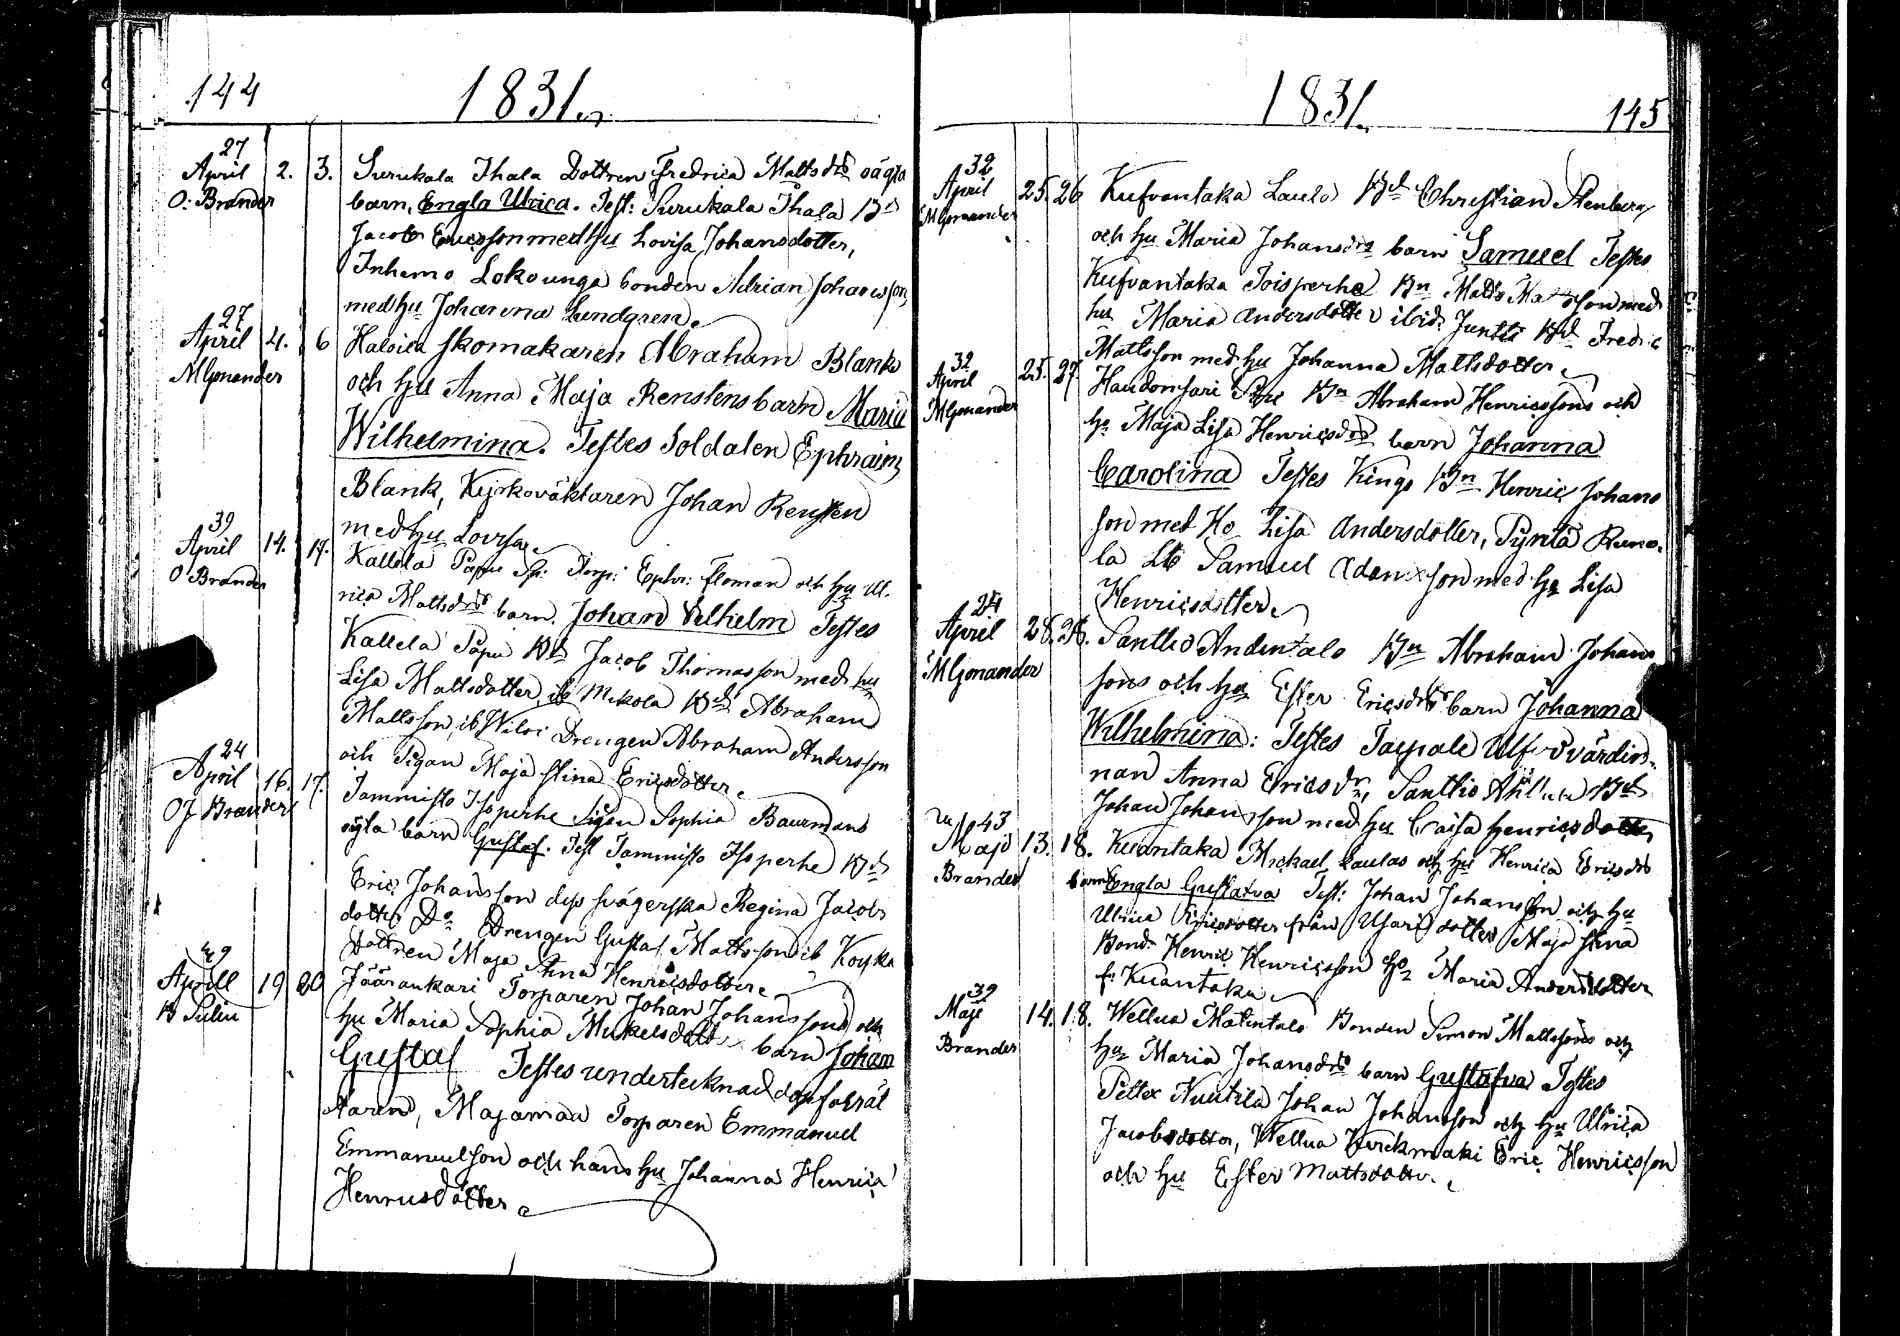 144 1831.
27
April 2. 3. Surukala Ihala Dottren Fredrica Matts drs oägta
O: Brander barn, Engla Ulrica. Test: Surukala Ihala Bd
Jacob Ericsson med hu Lovisa Johansdotter,
Inhemo Lokounga bonden Adrian Johansson
med hu Johanna Lundgren.
27
April 4. 6 Haloila skomakaren Abraham Blanks
M Gonander och hu Anna Maja Renstens barn Maria
Wilhelmina. Testes Soldaten Ephraim
Blank, Kyrkoväktaren Johan Rensten
med hu Lovisa.
39
April 14. 17. Kallela Papu Sp: Torp: Ephr: Floman och hu Ul-
O Brander rica Mattsdrs barn Johan Vilhelm Testes
Kallela Papu Bd Jacob Thomasson med hu
Lisa Mattsdotter, ib Mikola Bd Abraham
Mattsson, ib Wiloi Drengen Abraham Andersson
och Pigan Maja Stina Ericsdotter.
24
April 16. 17. Tammisto Isoperhe Pigan Sophia Baurmans
OJ Brander oägta barn Gustaf. Test Tammisto Isoperhe Bd
Eric Johansson dess svägerska Regina Jacobs
dotter Do Drengen Gustaf Mattsson ib Koyka
Dottren Maja Stina Henricsdotter.
49
Aprill 19 20 Jäärankari Torparen Johan Johanssons och
B Sulin hu Maria Sophia Mickelsdott barn Johan
Gustaf Testes undertecknad dopförrät
taren, Majamaa Torparen Emmanuel
Emmanuelson och hans hu Johanna Henrica
Henricsdotter.
1831. 145
32
April 25. 26 Kufvantaka Laulo Bd Christian Stenberg
M Gonander och hu Maria Johansdrs barn Samuel Testes
Kufvantaka Isoperhe Bn Matts Mattsson med
hu Maria Andersdotter ibid. Juntti Bd Fredric
Mattsson med hu Johanna Mattsdotter.
32
April 25. 27. Haudonsari Bn Abraham Henricssons och
M Gonander hu Maja Lisa Henricsdrs barn Johanna
Carolina Testes Kings Bn Henric Johans
son med Ho Lisa Andersdotter, Pyntä Runo-
la Samuel Adamsson med hu Lisa
Henricsdotter.
24
April 28. 28. Santtio Andintalo Bn Abraham Johans
M Gonander sons och hu Ester Ericsdrs barn Johanna
Wilhelmina: Testes Taipale Ulf värdin-
nan Anna Ericsdr, Santtio Bd
Johan Johansson med hu Caisa Henricsdotter
43
Majo 13. 18. Kuantaka Mickael Laulas och hu Henrica Ericsdrs
Brander barn Engla Gustafva Test: Johan Johansson och hu
Ulrica Ericsdotter från Usari dotter Maja Stina
Bond. Henric Henricsson Ho Maria Andersdotter
f. Kuantaka
39
Maje 14. 18. Wellua Matintalo Bonden Simon Mattssons och
Brander hu Maria Johansdrs barn Gustafva Testes
Petter Kuutila Johan Johansson och hu Ulrica
Jacobsdotter, Wellua Kirckmaki Eric Henricsson
och hu Ester Mattsdotter.